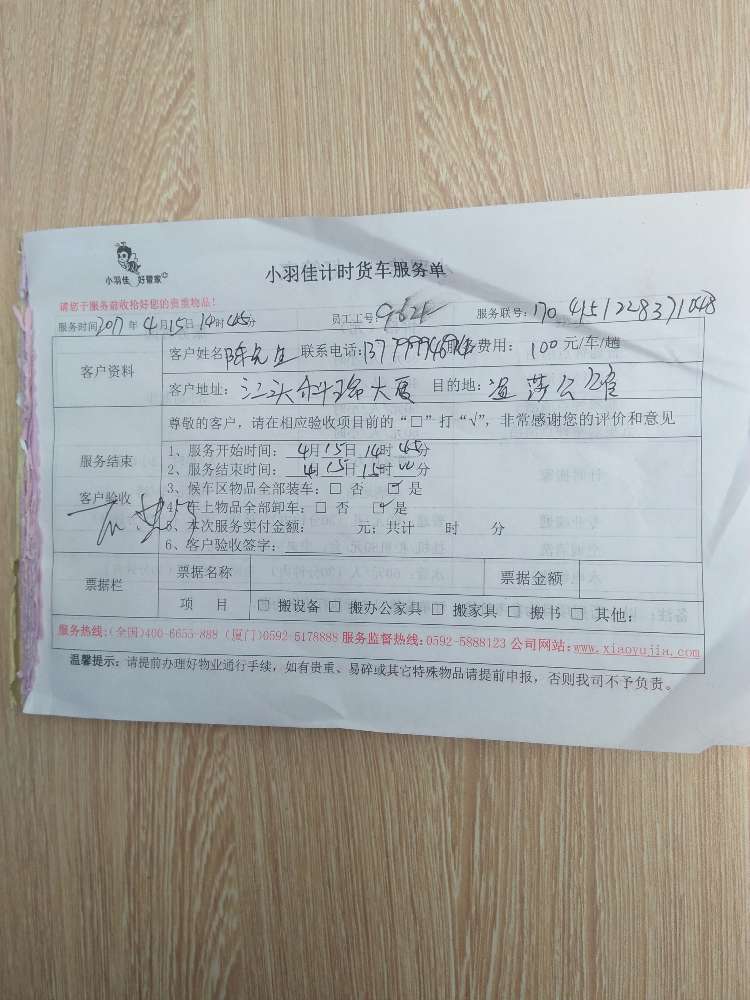 小羽佳 好管家
小羽佳计时货车服务单
请您于服务前收拾好您的贵重物品！
服务时间2017年4月15日14时45分 员工工号: 服务联号: 1704151228371048
客户资料
客户姓名 陈先生 联系电话: 服务费用: 100元/车/趟
客户地址: 江头 大厦 目的地: 温莎公馆
服务结束
客户验收
尊敬的客户，请在相应验收项目前的“□”打“√”，非常感谢您的评价和意见
1、服务开始时间: 4月15日14时45分
2、服务结束时间: 4月15日15时00分
3、候车区物品全部装车: □ 否 ☑ 是
4、车上物品全部卸车: □ 否 ☑ 是
5、本次服务实付金额: 元; 共计 时 分
6、客户验收签字:
票据栏
票据名称 票据金额
项 目 □ 搬设备 □ 搬办公家具 □ 搬家具 □ 搬书 □ 其他:
服务热线:(全国)400-6655-888 (厦门)0592-5178888 服务监督热线:0592-5888123 公司网站:www.xiaoyujia.com
温馨提示: 请提前办理好物业通行手续，如有贵重、易碎或其它特殊物品请提前申报，否则我司不予负责。